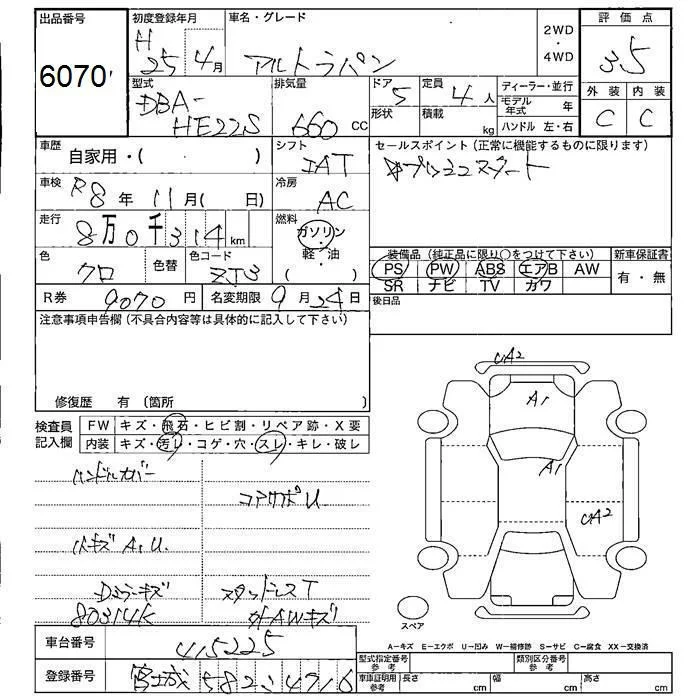 出品番号 初度登録年月 車名・グレード 2WD 評価点
6070 H25 4月 アルトラパン ・ 3.5
4WD
型式 排気量 ドア 定員 ディーラー・並行 外装 内装
DBA- 5 4人 モデル年式 年 C C
HE22S 660 CC 形状 積載 kg ハンドル 左・右
車歴 自家用・( ) シフト セールスポイント(正常に機能するものに限ります)
IAT オプションスマート
車検 R8年 11月( 日) 冷房 AC
走行 8万0千314km 燃料 ガソリン・軽・油( )
装備品(純正品に限り○をつけて下さい) 新車保証書
色 クロ 色替 色コード ZJ3 PS PW ABS エアB AW 有・無
SR ナビ TV カワ
R券 9070円 名変期限 9月24日 後日品
注意事項申告欄(不具合内容等は具体的に記入して下さい)
修復歴 有(箇所 )
検査員記入欄 FW キズ・飛石・ヒビ割・リペア跡・X要
内装 キズ・汚れ・コゲ・穴・スレ・キレ・破レ
ハンドルカバー
コアサポU
A1.U.
キズ スタッドレスT
80314K AWキズ
UA2
A1
A1
UA2
スペア
A－キズ E－エクボ U－凹み W－補修跡 S－サビ C－腐食 XX－交換済
車台番号 415225
型式指定番号参考 類別区分番号参考
登録番号 宮城 582 4716
車庫証明用参考 長さ cm 幅 cm 高さ cm